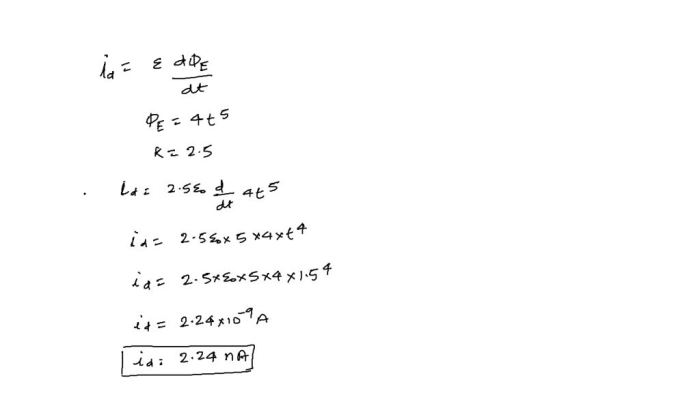 i_d = ε dΦ_E/dt
Φ_E = 4t^5
K = 2.5
i_d = 2.5ε₀ d/dt 4t^5
i_d = 2.5ε₀×5×4×t^4
i_d = 2.5×ε₀×5×4×1.5^4
i_d = 2.24×10^-9 A
i_d: 2.24 nA